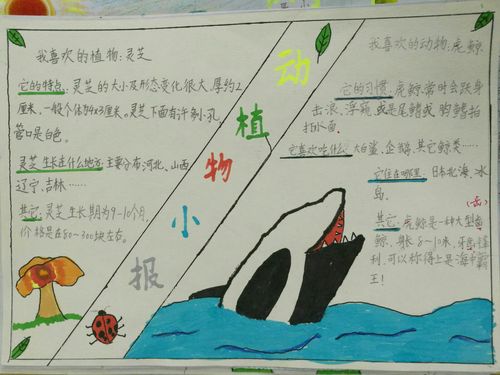 我喜欢的植物:灵芝
它的特点:灵芝的大小及形态变化很大,厚约2
厘米,一般个体为4x3厘米。灵芝下面有许多小孔,
管口是白色。
灵芝生长在什么地方:主要分布河北、山西
辽宁、吉林……
其它:灵芝生长期为9-10个月,
价格是在80~300块左右。
动
植
物
小
报
我喜欢的动物:虎鲸
它的习惯:虎鲸常时会跃身
击浪、浮窥,或是尾鳍或胸鳍拍
打水面。
它喜欢吃什么:大白鲨、企鹅、其它鲸类……
它住在哪里:日本北海、冰
岛。
其它:虎鲸是一种大型鱼
鲸,身长8~10米,牙齿锋
利,可以称得上是海中霸
王!